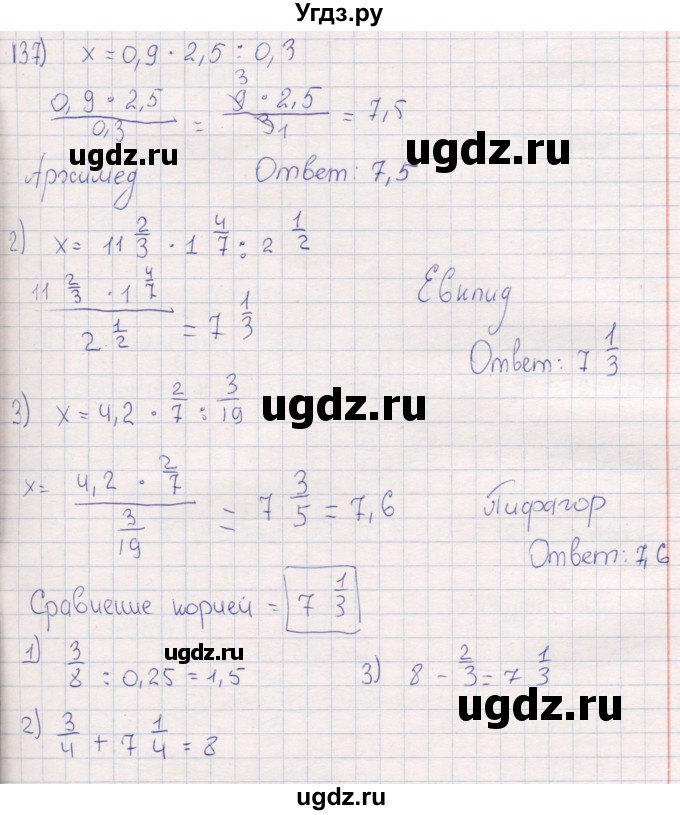 Угдз.ру
137) x = 0,9 · 2,5 : 0,3
0,9 · 2,5 / 0,3 = 9 3 · 2,5 / 3 1 = 7,5
ugdz.ru ugdz.ru
Архимед Ответ: 7,5
2) x = 11 2/3 · 1 4/7 : 2 1/2
11 2/3 · 1 4/7 / 2 1/2 = 7 1/3 Евклид
Ответ: 7 1/3
3) x = 4,2 · 2/7 : 3/19 ugdz.ru
x = 4,2 · 2/7 / 3/19 = 7 3/5 = 7,6 Пифагор
Ответ: 7,6
Сравнение корней = 7 1/3
ugdz.ru
1) 3/8 : 0,25 = 1,5 3) 8 - 2/3 = 7 1/3
ugdz.ru
2) 3/4 + 7 1/4 = 8
ugdz.ru